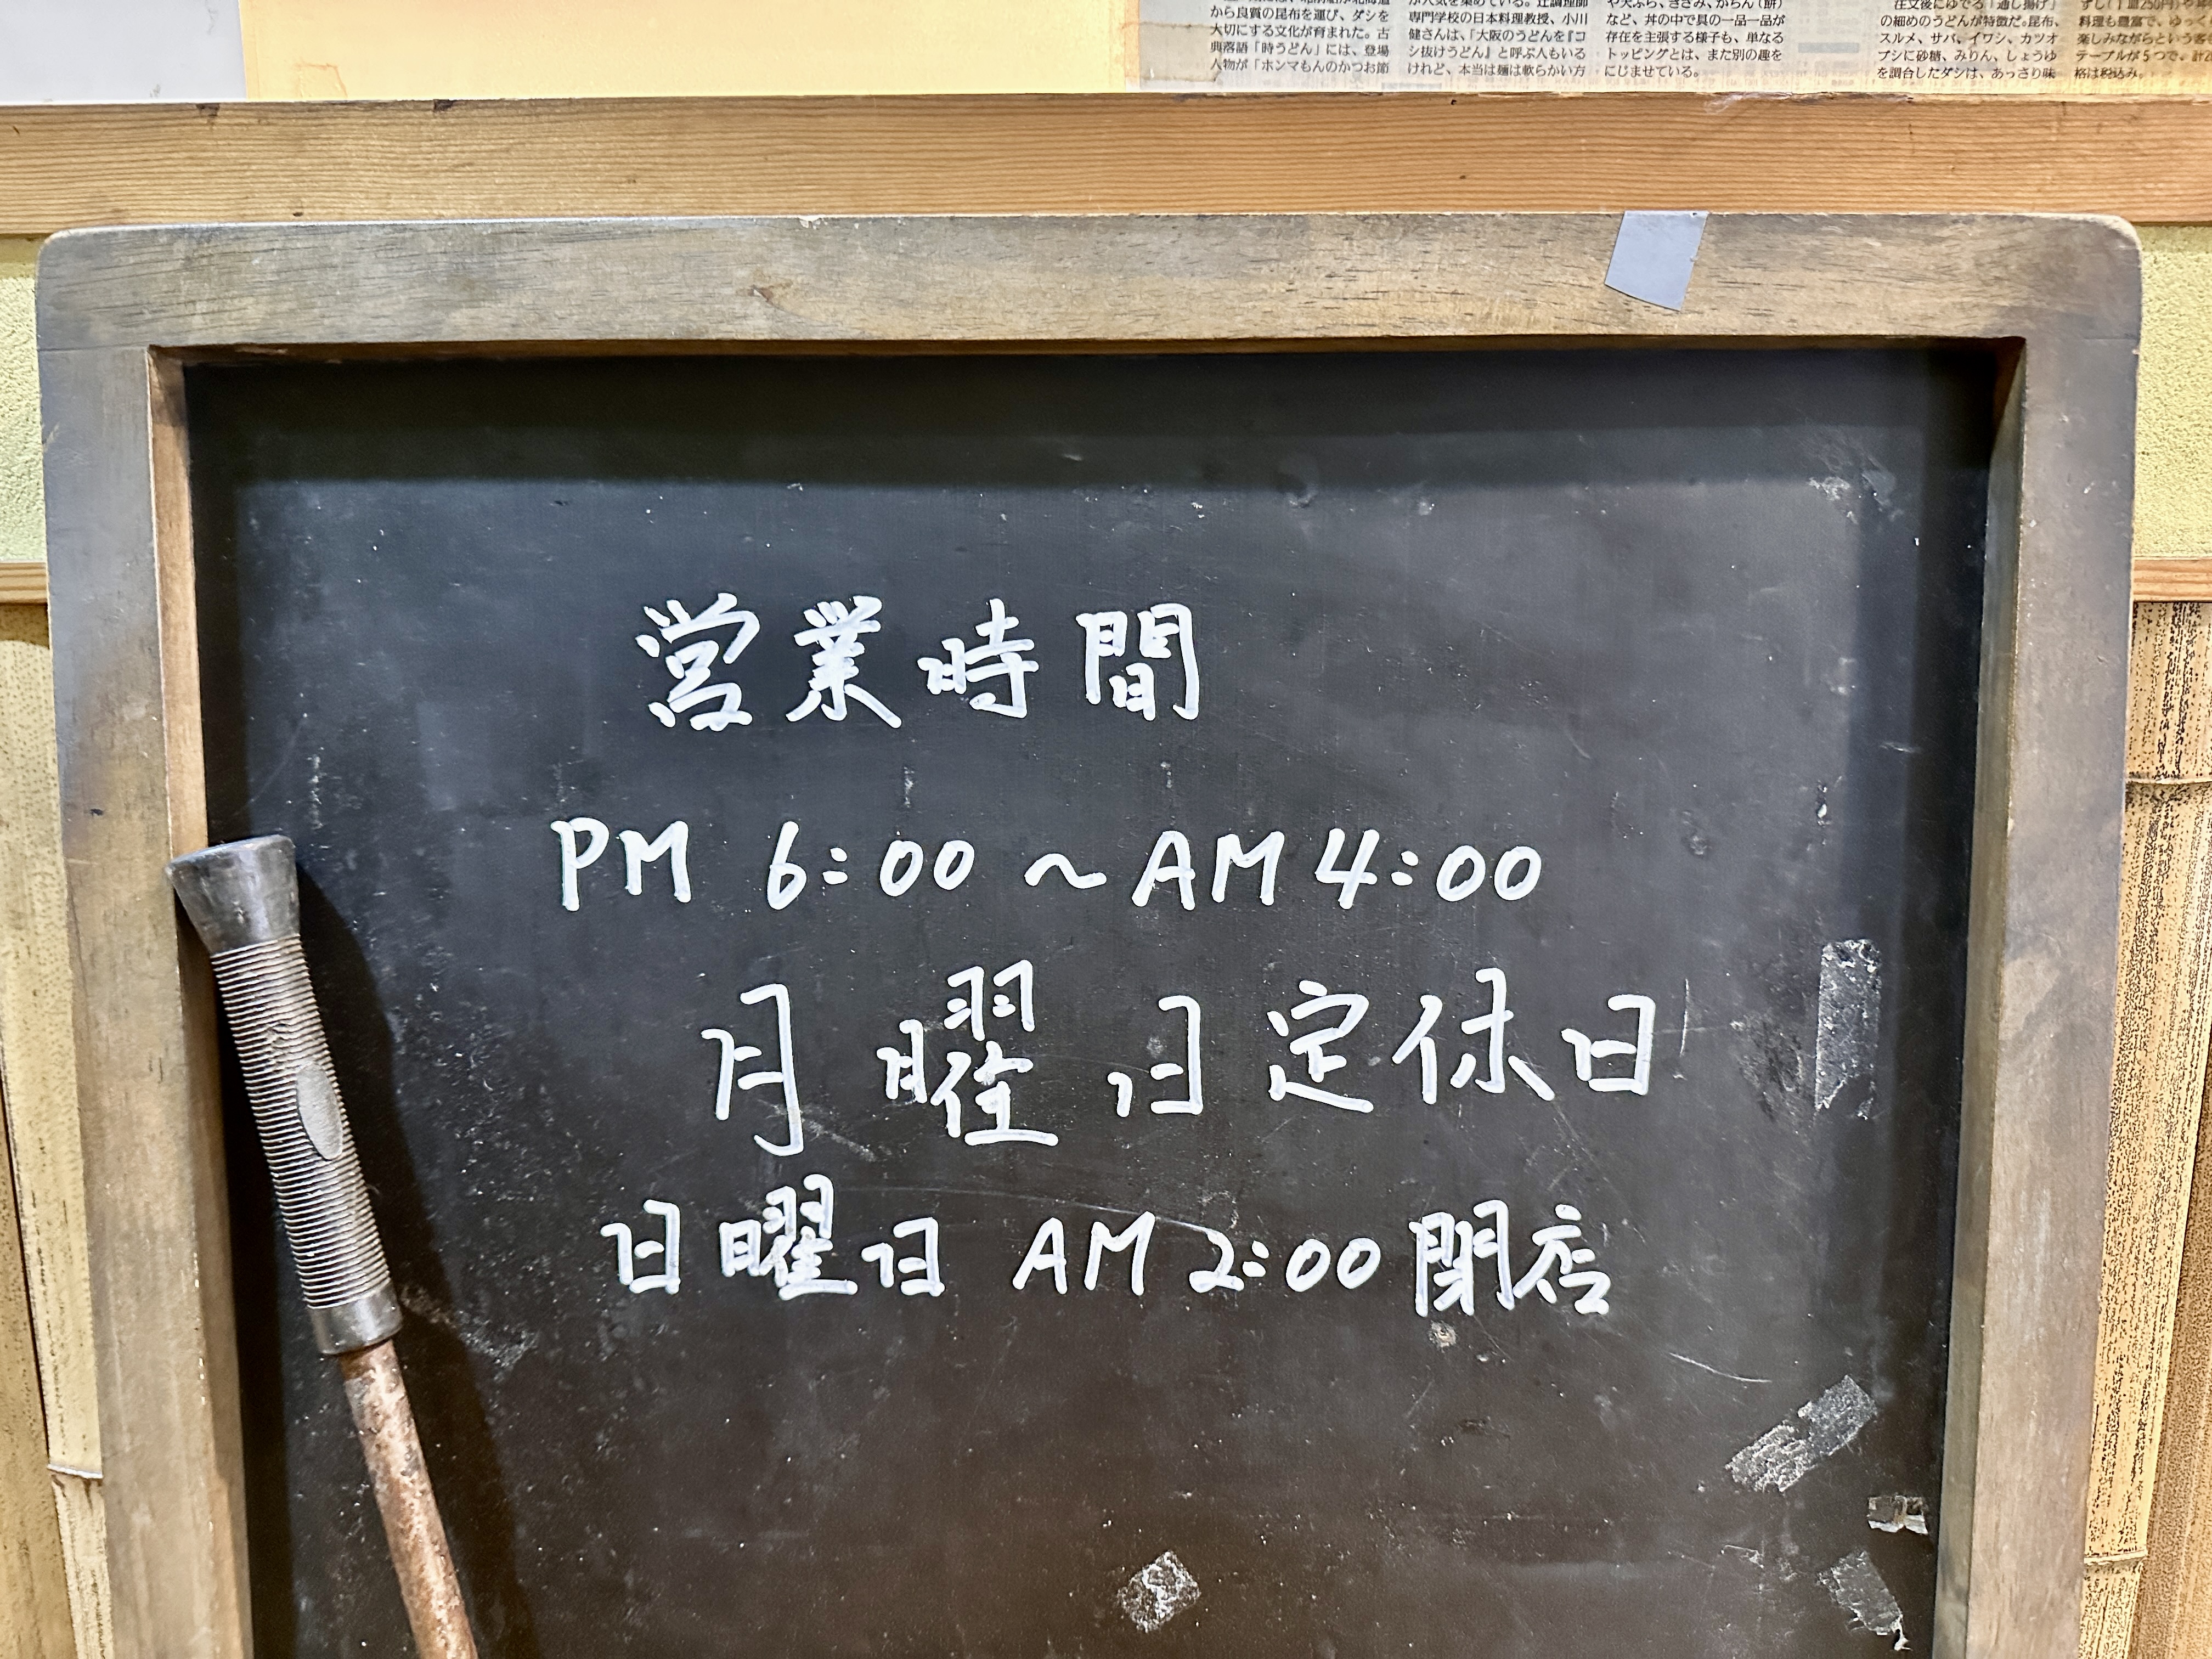 から良質の昆布を運び、ダシを
大切にする文化が育まれた。古
典落語「時うどん」には、登場
人物が「ホンマもんのかつお節
が人気を集めている。辻調理師
専門学校の日本料理教授、小川
健さんは、「大阪のうどんを『コ
シ抜けうどん』と呼ぶ人もいる
けれど、本当は麺は軟らかい方
や天ぷら、きざみ、かちん(餅)
など、丼の中で具の一品一品が
存在を主張する様子も、単なる
トッピングとは、また別の趣を
にじませている。
注文後にゆでる「通し揚げ」
の細めのうどんが特徴だ。昆布、
スルメ、サバ、イワシ、カツオ
ブシに砂糖、みりん、しょうゆ
を調合したダシは、あっさり味
ずし(1皿250円)や
料理も豊富で、ゆっく
楽しみながらという客
テーブルが5つで、計
格は税込み。
営業時間
PM 6:00 〜 AM 4:00
月曜日定休日
日曜日 AM 2:00 閉店